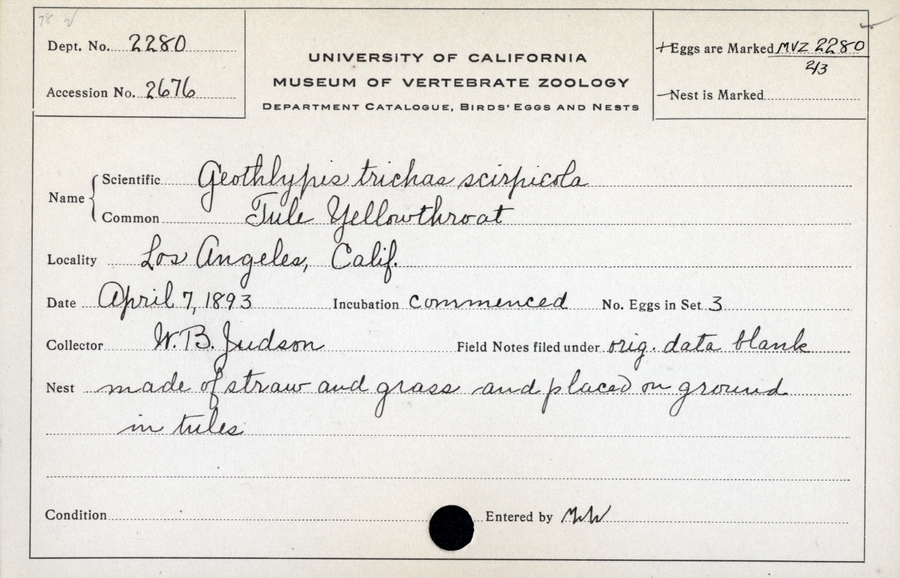 Dept. No. 2280
Accession No. 2676
UNIVERSITY OF CALIFORNIA
MUSEUM OF VERTEBRATE ZOOLOGY
DEPARTMENT CATALOGUE, BIRDS' EGGS AND NESTS
Eggs are Marked MVZ 2280
2/3
Nest is Marked
Name
Scientific Geothlypis trichas scirpicola
Common Tule Yellowthroat
Locality Los Angeles, Calif.
Date April 7, 1893 Incubation commenced No. Eggs in Set 3
Collector W.B. Judson Field Notes filed under orig. data blank
Nest made of straw and grass and placed on ground
in tules
Condition Entered by MW